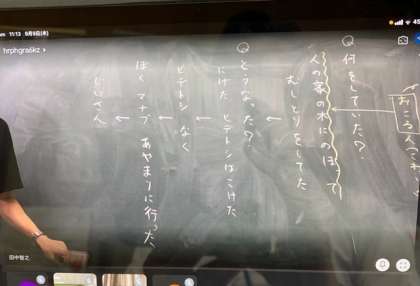 11:13 9月9日(木)
hrphgra6kz
Q 何をしていた?
人の家の木にのぼって
むしとりをしてた
Q どうなった?
にげた ヒデトシはこけた
ヒデトシ なく
ぼく マナブ あやまりに行った、
じいさん
田中智之